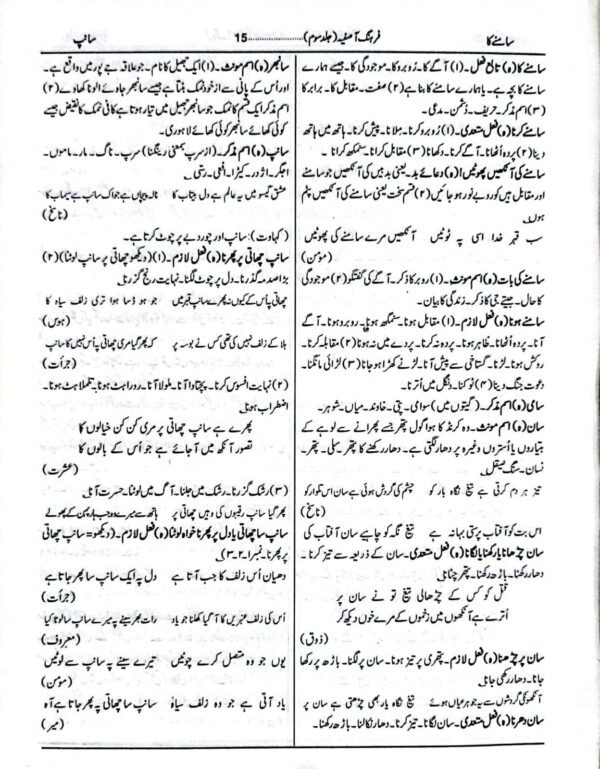 سامنے کا
فرہنگ آصفیہ (جلد سوم) ............ 15
سانپ
سامنے کا (ہ) تابع فعل۔ (۱) آگے کا۔ رُوبرو کا۔ موجودگی کا۔ جیسے ہمارے
سامنے کا بچہ ہے۔ یا ہمارے سامنے کا بنا ہے (۲) صفت۔ مقابل کا۔ برابر کا
(۳) اسم مذکر۔ حریف۔ دشمن۔ مدعی۔
سامنے کرنا (ہ) فعل متعدی۔ (۱) رُوبرو کرنا۔ ملانا۔ پیش کرنا۔ ہاتھ میں ہاتھ
دینا (۲) پردہ اُٹھانا۔ آگے کرنا۔ دکھانا (۳) مقابل کرنا۔ سنمکھ کرنا۔
سامنے کی آنکھیں پھوٹیں! (ہ) دعائے بد۔ یعنی بد ہیں کی آنکھیں جو سامنے
اور مقابل ہیں کور و بے نور ہو جائیں (۲) قسم سخت یعنی سامنے کی آنکھیں پٹم
ہوں۔
سب قہر خدا اسی پہ ٹوٹیں آنکھیں مرے سامنے کی پھوٹیں
(مومن)
سامنے کی بات (ہ) اسم مونث۔ (۱) روبرو کا ذکر۔ آگے کی گفتگو (۲) موجودگی
کا حال۔ جیتے جی کا ذکر۔ زندگی کا بیان۔
سامنے ہونا (ہ) فعل لازم۔ (۱) مقابل ہونا۔ سنمکھ ہونا۔ روبرو ہونا۔ آگے
آنا۔ پردہ اُٹھانا۔ ظاہر ہونا۔ پردہ نہ کرنا۔ پردے میں نہ ہونا (۲) مقابلہ کرنا۔
روکش ہونا۔ لڑنا۔ گستاخی سے پیش آنا۔ لڑنے کھڑا ہو جانا (۳) لڑائی مانگنا۔
دعوت جنگ دینا (۴) ٹوکنا۔ دنگل میں اُترنا۔
سامی (ہ) اسم مذکر۔ (گیتوں میں) سوامی۔ پتی۔ خاوند۔ میاں۔ شوہر۔
سان (ہ) اسم مونث۔ وہ کرنڈ کا ہوا گول پتھر جسے پھرانے سے لوہے کے
ہتیاروں یا اُستروں وغیرہ پر دھار لگتی ہے۔ دھار رکھنے کا پتھر۔ سلی۔ پتھر۔
نسان۔ سنگ صیقل۔
تیز ہر دم کرتی ہے تیغ نگاہ یار کو چشم کی گردش ہوئی ہے سان اس تلوار کو
اس بت کو آفتاب پرستی بہانہ ہے تیغ نگہ کو چاہیے سان آفتاب کی
سان چڑھانا یا رکھنا یا لگانا (ہ) فعل متعدی۔ سان کے ذریعہ سے تیز کرنا۔
دھار رکھنا۔ باڑھ رکھنا۔ پتھر چٹانا۔
قتل کو کس کے چڑھائی تیغ تو نے سان پر
اُترے ہے آنکھوں میں زخموں کے مرے خوں دیکھ کر
(ذوق)
سان پر چڑھنا (ہ) فعل لازم۔ پتھری پر تیز ہونا۔ سان پر لگنا۔ باڑھ پر رکھا
جانا۔ دھار رکھی جانا۔
آنکھوکی گردشوں سے یہ جوہر عیاں ہوئے تیغ نگاہ یار بھی چڑھتی ہے سان پر
سان دھرنا (ہ) فعل متعدی۔ سان لگانا۔ تیز کرنا۔ دھار نکالنا۔ باڑھ رکھنا۔
سانبھر (ہ) اسم مونث۔ (۱) ایک جھیل کا نام۔ جو علاقہ جے پور میں واقع ہے۔
اور اُس کے پانی سے از خود نمک بنتا ہے جیسے سانبھر جائے الونا کھاوے (۲)
اسم مذکر ایک قسم کا نمک جو سانبھر جھیل میں تیار ہوتا ہے کانی نمک کا نقیض جیسے
کوئی کھائے سانبھر کوئی کھائے لاہوری۔
سانپ (ہ) اسم مذکر۔ (از سرپ بمعنی رینگنا) سرپ۔ ناگ۔ مار۔ ماموں۔
اجگر۔ اژدر۔ کیڑا۔ افعی۔ رسّی۔
عشق گیسو میں یہ عالم ہے دل بیتاب کا نالہ پیچاں ہے جواک سانپ ہے سیماب کا
(ناسخ)
(کہاوت): سانپ اور چور دبے پر چوٹ کرتا ہے۔
سانپ چھاتی پر پھرنا (ہ) فعل لازم۔ (۱) (دیکھو چھاتی پر سانپ لوٹنا) (۲)
بڑا صدمہ گذرنا۔ دل پر چوٹ لگنا۔ نہایت رنج گزرنا۔
چھاتی پاس کے کیوں نہ پھرے سانپ قبر میں جو ہو ڈسا ہوا تری زلف سیاہ کا
(ہوس)
بلا کے زلف نہیں کی تھی کس نے بوسہ پر کہ پھر گیا مری چھاتی پاس نہیں کا سانپ
(جرأت)
(۲) نہایت افسوس کرنا۔ پچتاوا آنا۔ ہولا آنا۔ دوراہٹ ہونا۔ تلملاہٹ ہونا۔
اضطراب ہونا۔
پھرے ہے سانپ چھاتی پر مری کن کن خیالوں کا
تصور آنکھ میں آجائے ہے جو اُس کے بالوں کا
(عشرت)
(۳) رشک گزرنا۔ رشک میں جلنا۔ آگ میں لوٹنا۔ حسرت آنا۔
پھر گیا سانپ رقیبوں کی وہیں چھاتی پر ہاتھ سے میرے وہ جب ہار پہن کے پھولے
سانپ سا چھاتی یا دل پر پھرنا خواہ لوٹنا (ہ) فعل لازم۔ (دیکھو سانپ چھاتی
پر پھرنا۔ نمبر ۱-۲-۳)
دھیان اُس زلف کا جب آتا ہے دل پہ ایک سانپ سا پھر جاتا ہے
(جرأت)
اُس کی زلف عنبریں کا آ گیا کھلنا جو یاد رات بھر سینے پہ میرے سانپ سا لوٹا کیا
(معروف)
یوں جو وہ متصل کرے چوٹیں تیرے سینے پہ سانپ سے لوٹیں
(مومن)
یاد آتی ہے جو وہ زلف سیاہ سانپ سا چھاتی پہ پھر جاتا ہے آہ
(میر)